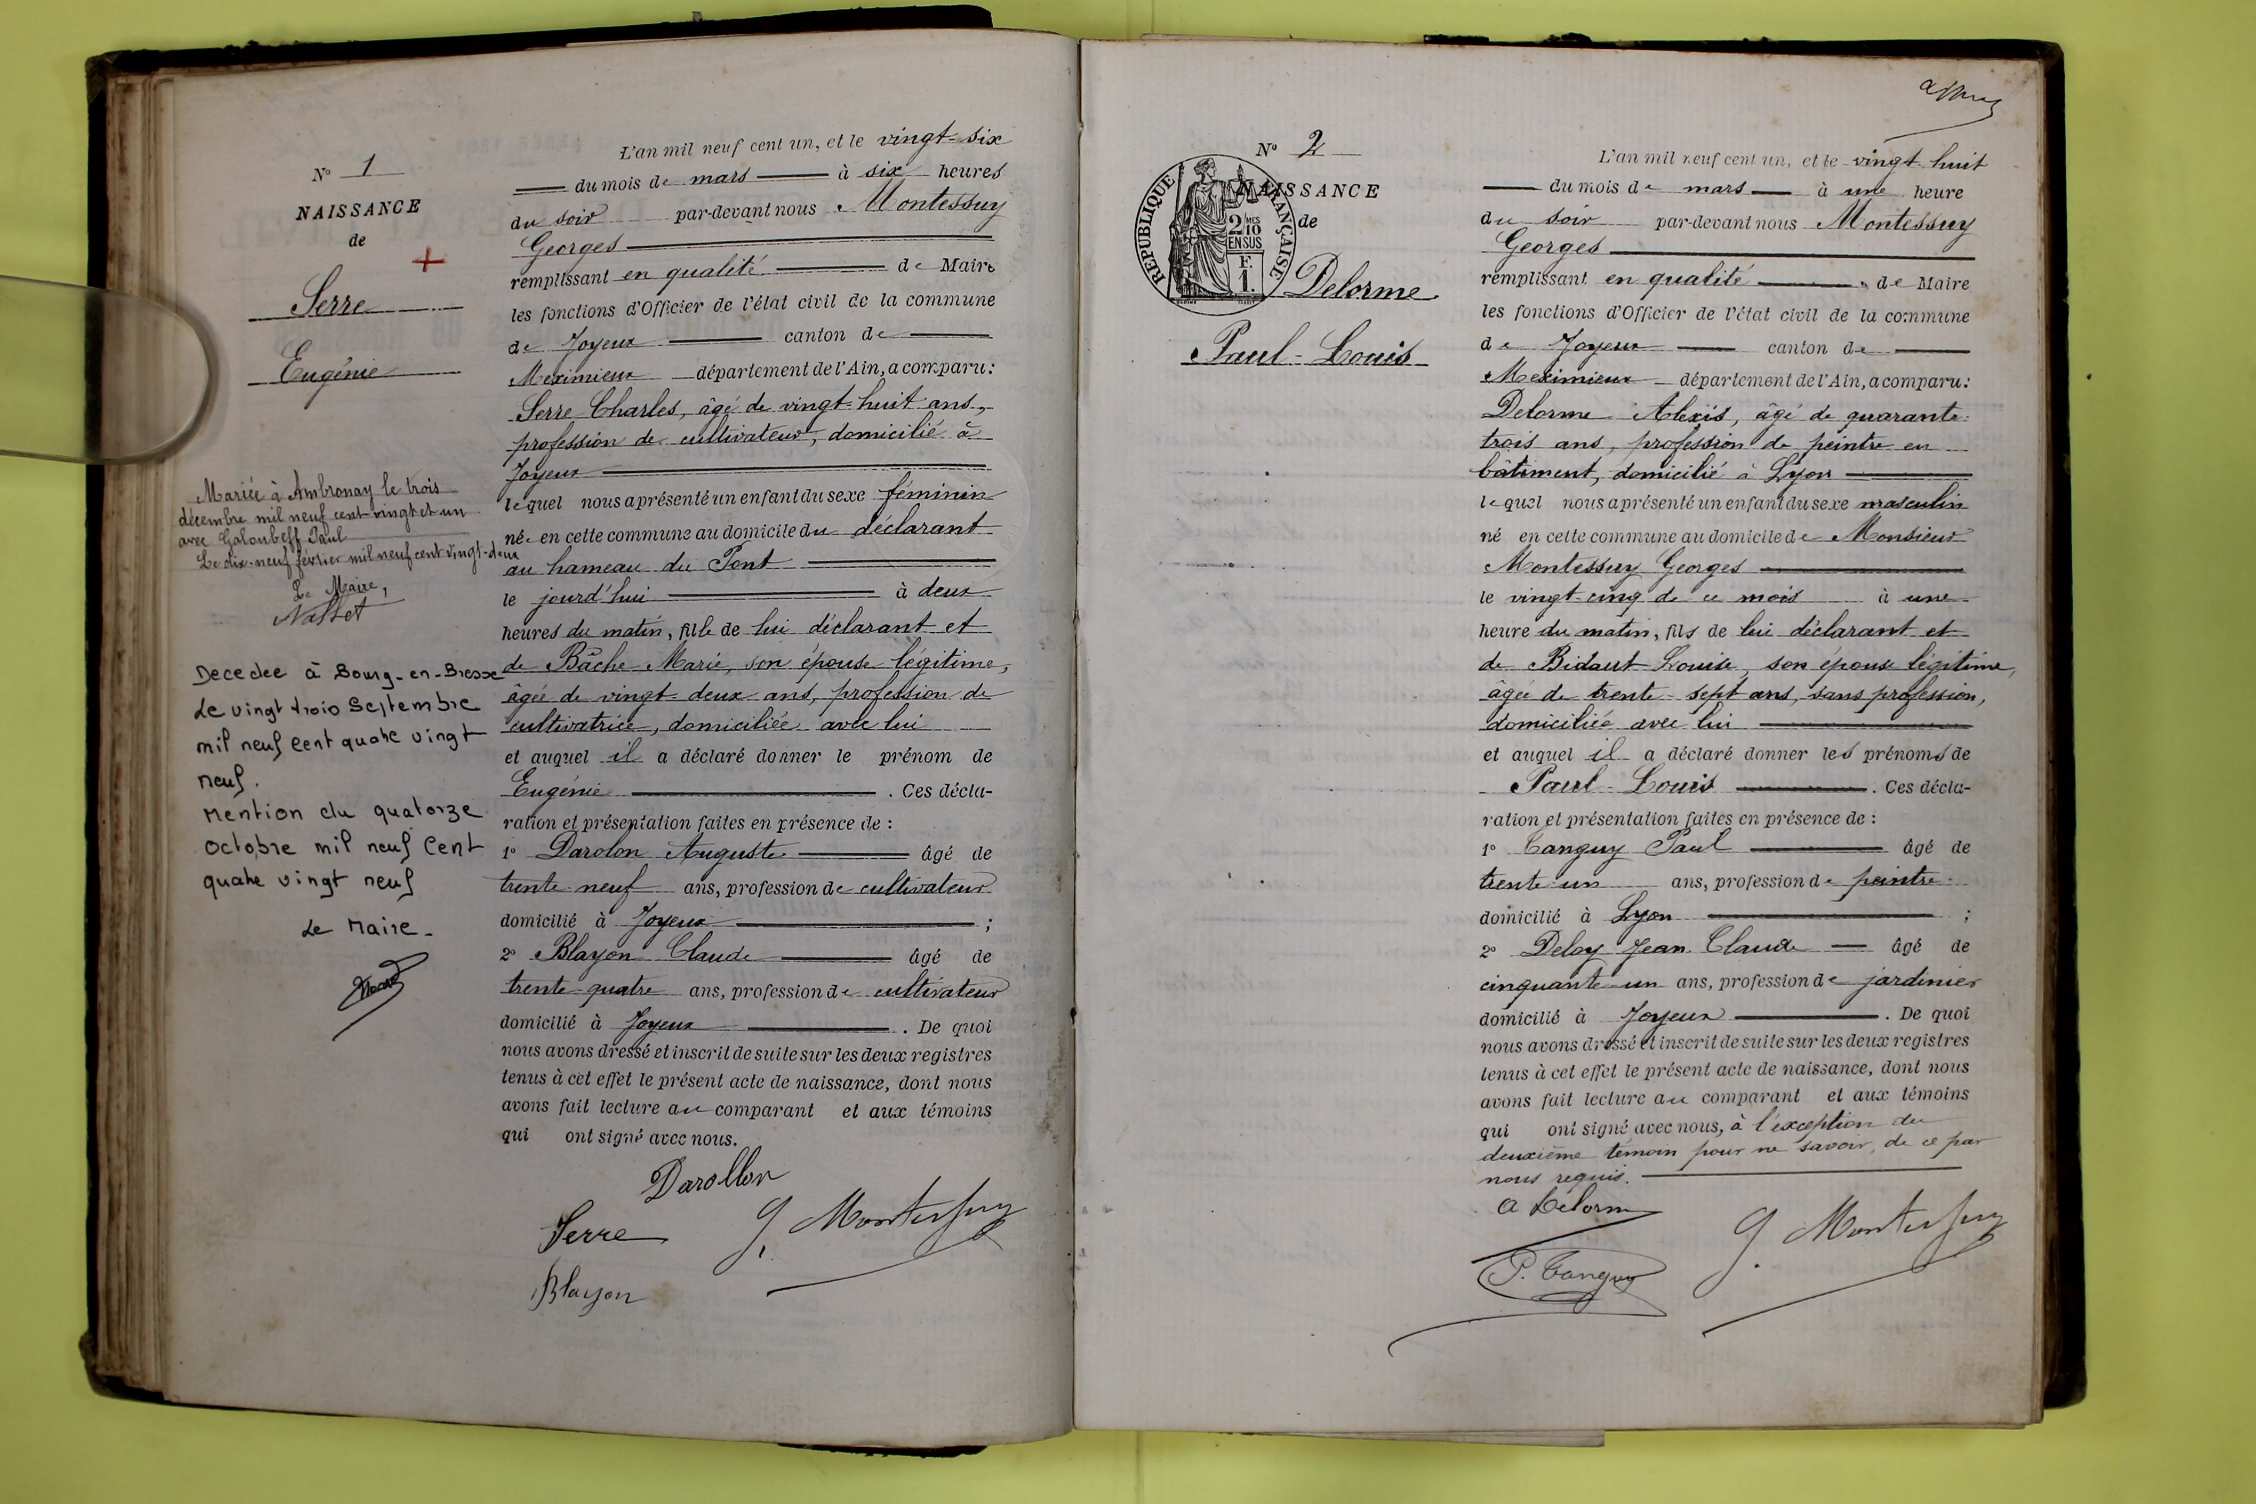 N° 1
NAISSANCE
de
Serre
Eugénie
Mariée à Ambronay le trois
décembre mil neuf cent vingt et un
avec Galoubeff Paul
Le dix-neuf février mil neuf cent vingt-deux
Le Maire,
Decedee à Bourg-en-Bresse
Le vingt trois Septembre
mil neuf cent quatre vingt
neuf.
Mention du quatorze
octobre mil neuf cent
quatre vingt neuf
Le Maire
L'an mil neuf cent un, et le vingt-six
du mois de mars à six heures
du soir par-devant nous Montessuy
Georges
remplissant en qualité de Maire
les fonctions d'Officier de l'état civil de la commune
de Joyeux canton de
Meximieux département de l'Ain, a comparu :
Serre Charles, âgé de vingt-huit ans,
profession de cultivateur, domicilié à
Joyeux
lequel nous a présenté un enfant du sexe féminin
née en cette commune au domicile du déclarant
au hameau du Pont
le jourd'hui à deux
heures du matin, fille de lui déclarant et
de Bâche Marie, son épouse légitime,
âgée de vingt-deux ans, profession de
cultivatrice, domiciliée avec lui
et auquel il a déclaré donner le prénom de
Eugénie . Ces décla-
ration et présentation faites en présence de :
1° Darolon Auguste âgé de
trente-neuf ans, profession de cultivateur
domicilié à Joyeux ;
2° Blayon Claude âgé de
trente-quatre ans, profession de cultivateur
domicilié à Joyeux . De quoi
nous avons dressé et inscrit de suite sur les deux registres
tenus à cet effet le présent acte de naissance, dont nous
avons fait lecture au comparant et aux témoins
qui ont signé avec nous.
Darollon
Serre G. Montessuy
Blayon
N° 2
NAISSANCE
de
RÉPUBLIQUE FRANÇAISE
2 MES
10
EN SUS
F.
1.
Delorme
Paul-Louis
L'an mil neuf cent un, et le vingt huit
du mois de mars à une heure
du soir par-devant nous Montessuy
Georges
remplissant en qualité de Maire
les fonctions d'Officier de l'état civil de la commune
de Joyeux canton de
Meximieux département de l'Ain, a comparu :
Delorme Alexis, âgé de quarante-
trois ans, profession de peintre en
bâtiment, domicilié à Lyon
lequel nous a présenté un enfant du sexe masculin
né en cette commune au domicile de Monsieur
Montessuy Georges
le vingt-cinq de ce mois à une
heure du matin, fils de lui déclarant et
de Bidaut Louise, son épouse légitime,
âgée de trente-sept ans, sans profession,
domiciliée avec lui
et auquel il a déclaré donner les prénoms de
Paul-Louis . Ces décla-
ration et présentation faites en présence de :
1° Tanguy Paul âgé de
trente-un ans, profession de peintre
domicilié à Lyon ;
2° Deloy Jean Claude âgé de
cinquante-un ans, profession de jardinier
domicilié à Joyeux . De quoi
nous avons dressé et inscrit de suite sur les deux registres
tenus à cet effet le présent acte de naissance, dont nous
avons fait lecture au comparant et aux témoins
qui ont signé avec nous, à l'exception du
deuxième témoin pour ne savoir, de ce par
nous requis.
A Delorme
P. Tanguy G. Montessuy